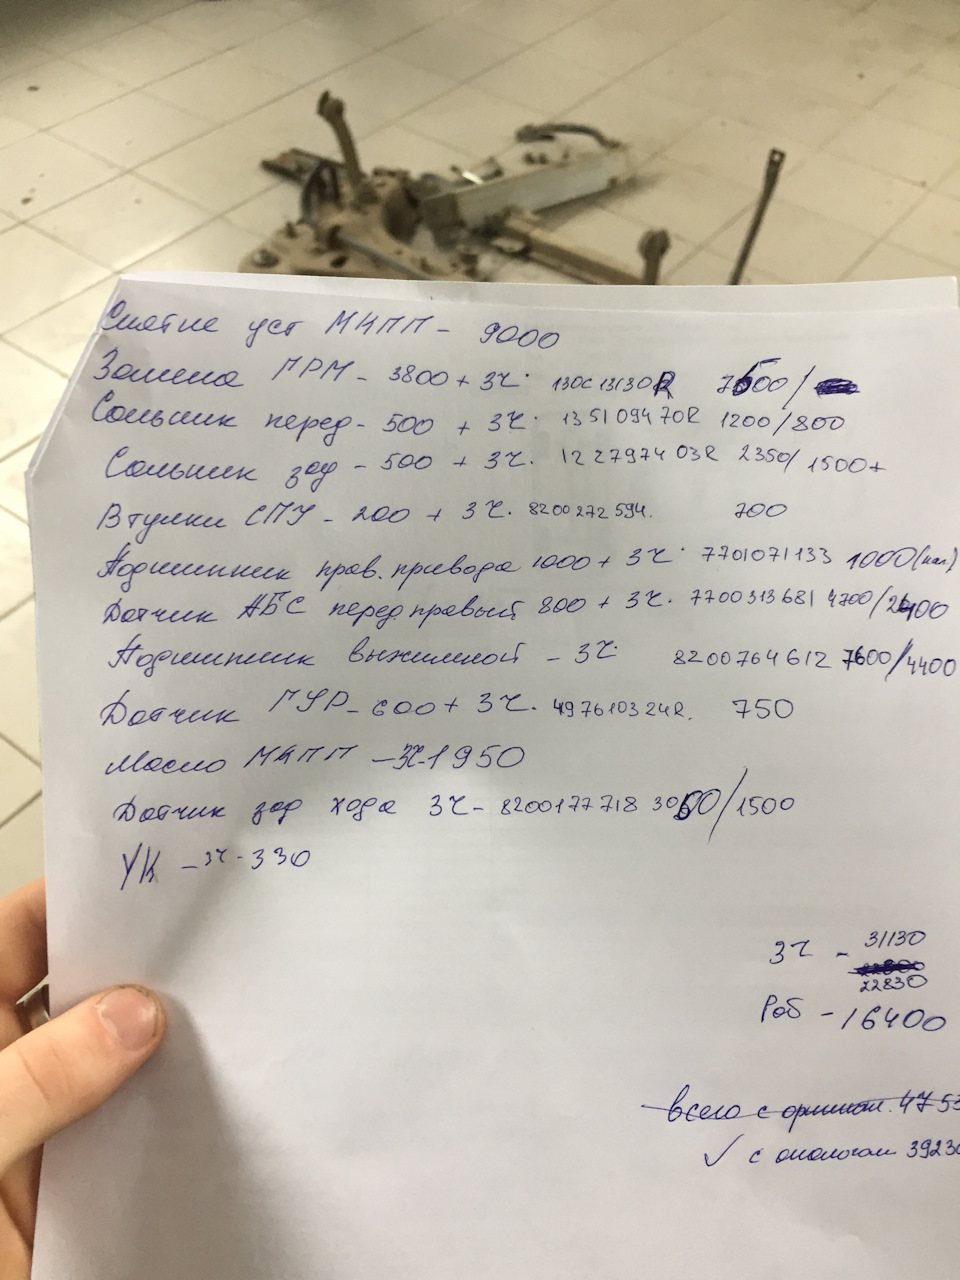 Снятие уст МКПП - 9000
Замена ГРМ - 3800 + ЗЧ. 130C13130R 7500/
Сальник перед - 500 + ЗЧ. 135109470R 1200/800
Сальник зад - 500 + ЗЧ. 122797403R 2350/1500+
Втулки СПУ - 200 + ЗЧ. 8200272594. 700
Подшипник прав. привода 1000 + ЗЧ. 7701071133 1000(нал)
Датчик АБС перед.правый 800 + ЗЧ. 7700313681 4700/2400
Подшипник выжимной - ЗЧ 8200764612 7600/4400
Датчик ГУР - 600 + ЗЧ. 497610324R. 750
Масло МКПП - ЗЧ-1950
Датчик зад хода ЗЧ - 8200177718 3050/1500
УК - ЗЧ - 330
ЗЧ - 31130
22830
Раб - 16400
всего с оригинал. 4753
✓ с аналогам 39230